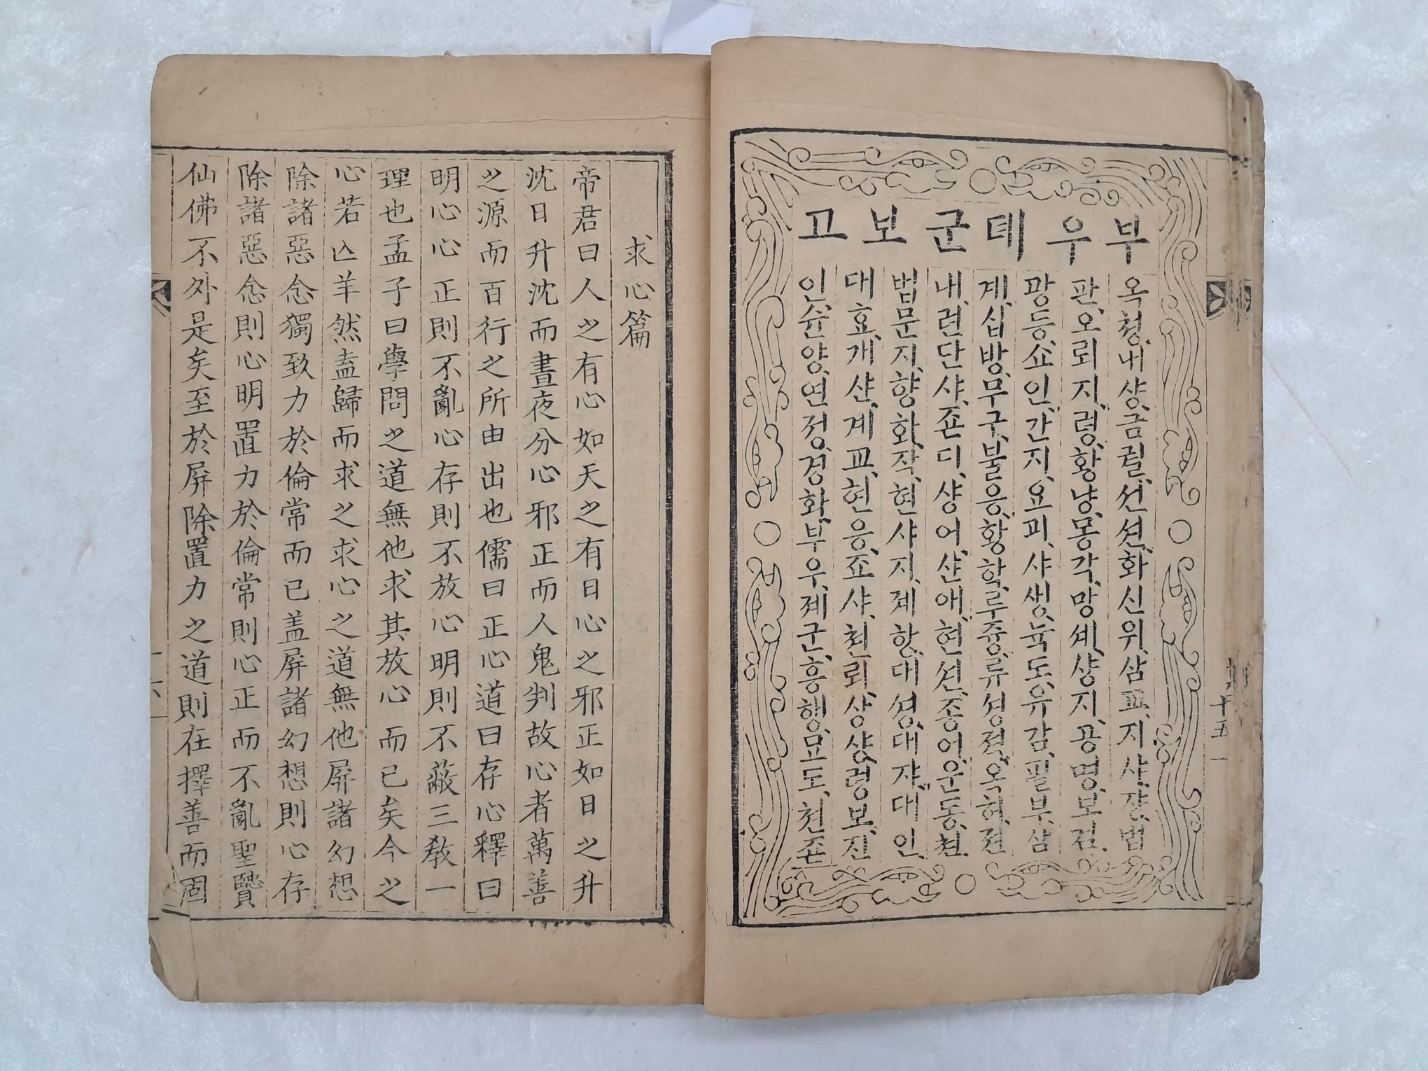 부우뎨군보고
옥쳥,내샹,금궐,션션,화신위,삼교,지샤,쟝법
판,오뢰,지,령,황냥,몽각,망셰,샹지,공명,보검,
광등,쇼인,간지,요괴,샤생,뉵도,유감,필부,삼
계,십방,무구,불응,황학,루즁,류셩젼,옥허,젼
내,련단샤,죤디,샹어,샨애,현션,죵어,운동,쳔
법문지,향화,작,현샤지,졔항,대셩,대쟈,대인
대효,개샨,계교,현응,죠샤,쳔뢰,샹샹,령보,진
인,슌양,연졍,경화,부우,졔군,흥행,묘도,쳔죤
十五
求心篇
帝君曰人之有心如天之有日心之邪正如日之升
沈日升沈而晝夜分心邪正而人鬼判故心者萬善
之源而百行之所由出也儒曰正心道曰存心釋曰
明心心正則不亂心存則不放心明則不蔽三敎一
理也孟子曰學問之道無他求其放心而已矣今之
心若亾羊然盍歸而求之求心之道無他屛諸幻想
除諸惡念獨致力於倫常而已盖屛諸幻想則心存
除諸惡念則心明置力於倫常則心正而不亂聖賢
仙佛不外是矣至於屛除置力之道則在擇善而固